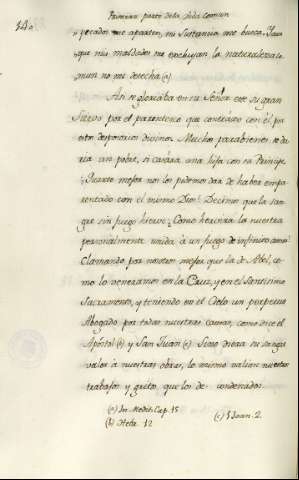 540
Primera parte de la vida comun
pecados me aparten, mi sustancia me busca. Para
que mis maldades me excluyan la naturaleza co-
mun no me desecha (a)
Asi se gloriaba en su Señor este su gran
siervo por el parentesco que contraxo con él por
estos desposorios divinos. Muchos parabienes se da-
ria un pobre, si casara una hija con su Principe
¿Quanto mejor nos los podemos dar de haber empa-
rentado con el mismo Dios? Decimos que la san-
gre sin fuego hierve; Como herirá la nuestra
personalmente unida à un fuego de infinito amor
Clamando por nosotros mejor que la de Abel, co-
mo lo veneramos en la Cruz, y en el Santisimo
Sacramento, y teniendo en el Cielo un perpetuo
Abogado por todas nuestras causas, como dice el
Apóstol (b) y San Juan (c) Sino diera su sangre
valor à nuestras obras, lo mismo valian nuestros
trabajos y gritos, que los de condenados.
(a) In Medit. Cap. 15
(b) Hebr. 12
(c) 1 Joan. 2.